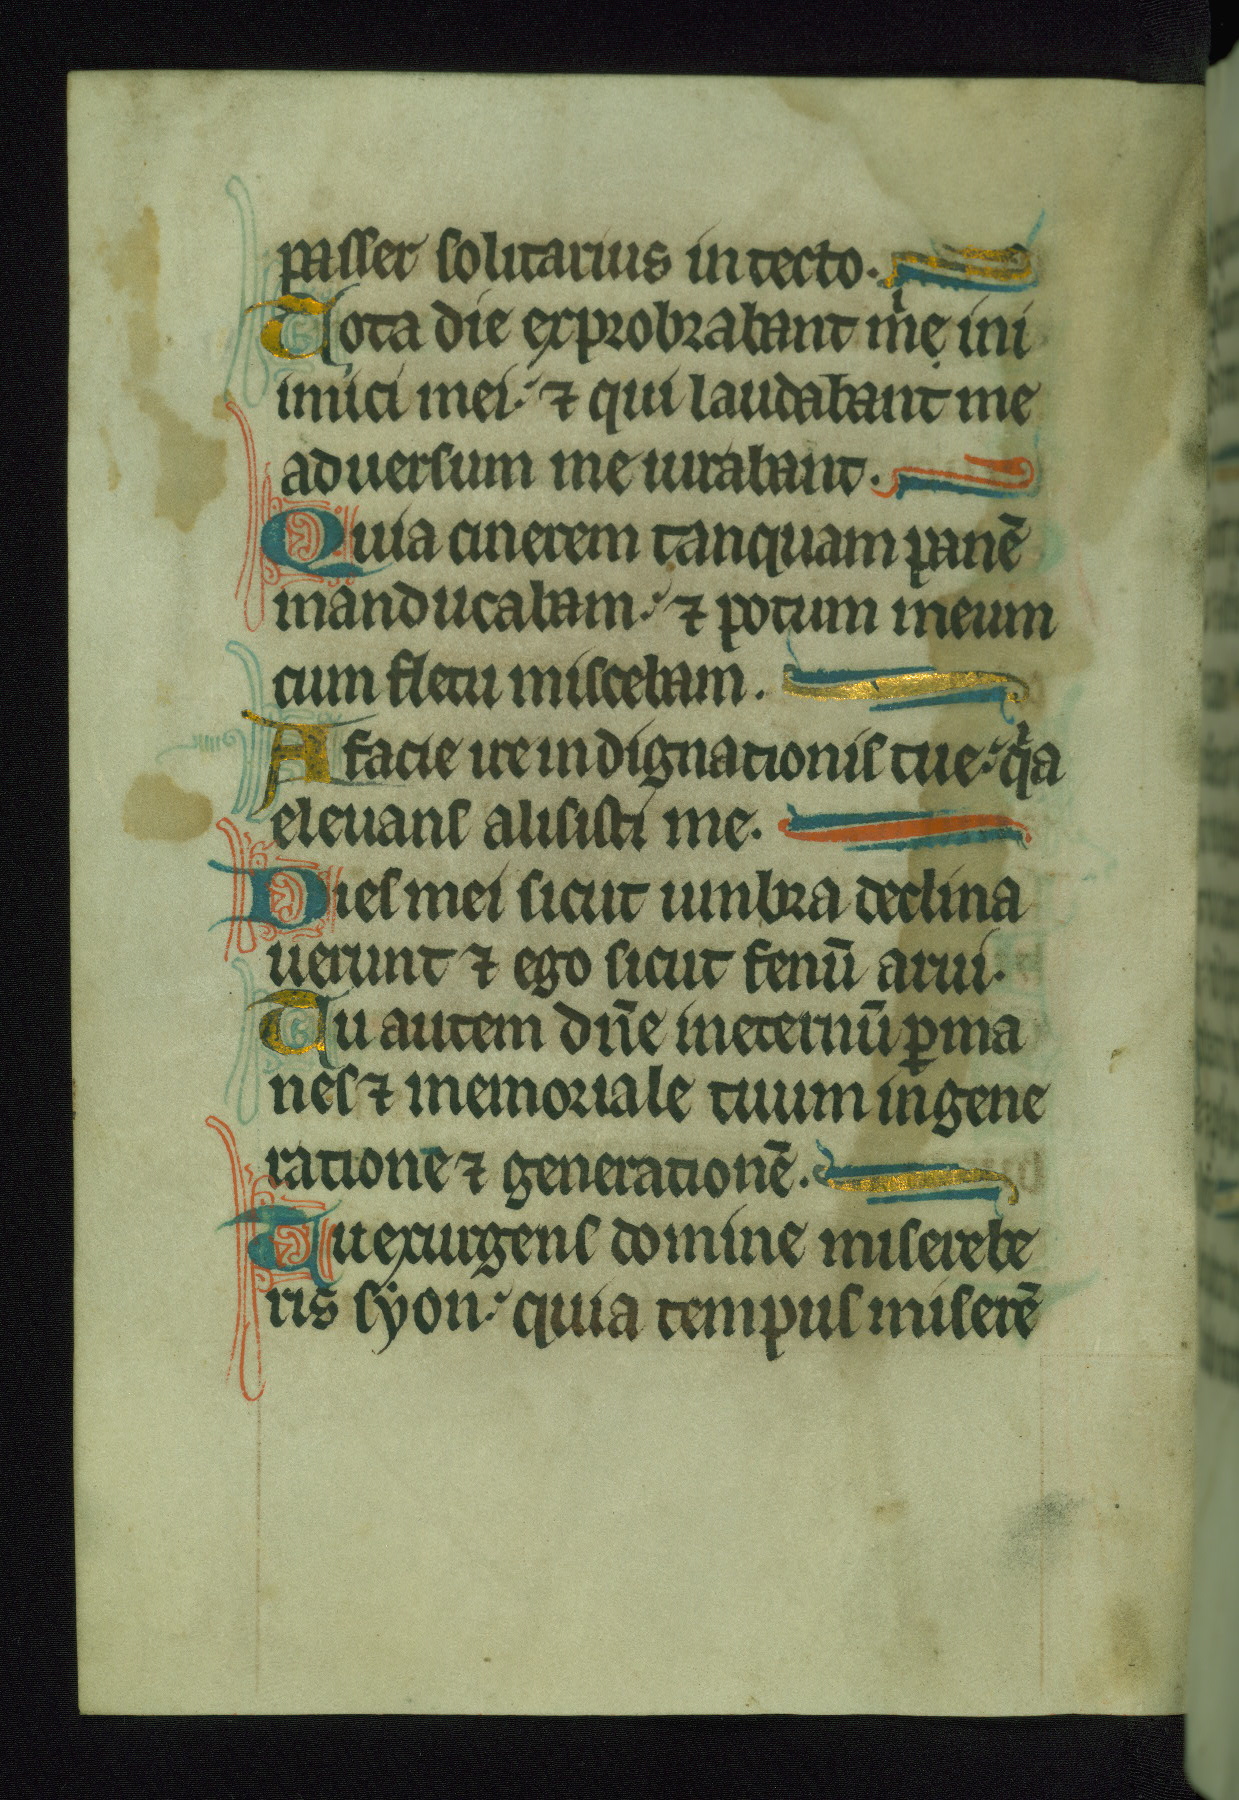 passer solitarius in tecto.
Tota die exprobrabant mͥ ini
imici mei. ⁊ qui laudabant me
aduersum me iurabant.
Quia cinerem tanquam panē
manducabam. ⁊ potum meum
cum fletu miscebam.
A facie ire indignationis tue. qͥa
eleuans alisisti me.
Dies mei sicut umbra declina
uerunt ⁊ ego sicut fenū arui.
Tu autem dn̄e in eternū ꝑma
nes ⁊ memoriale tuum in gene
ratione ⁊ generationē.
Tu exurgens domine miserebe
ris syon. quia tempus miserē